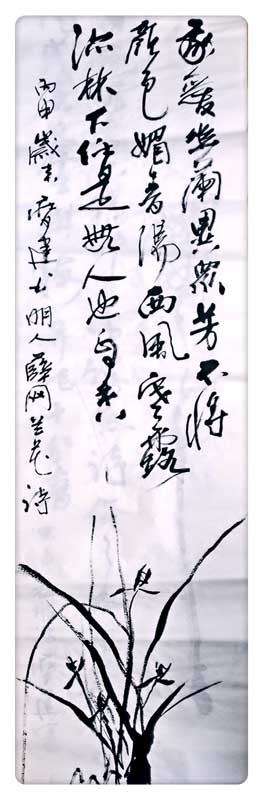 我愛幽蘭異眾芳不将
顏色媚春陽西風寒露
深林下任是無人也自香
丙申歲末建书明人薛网兰花诗